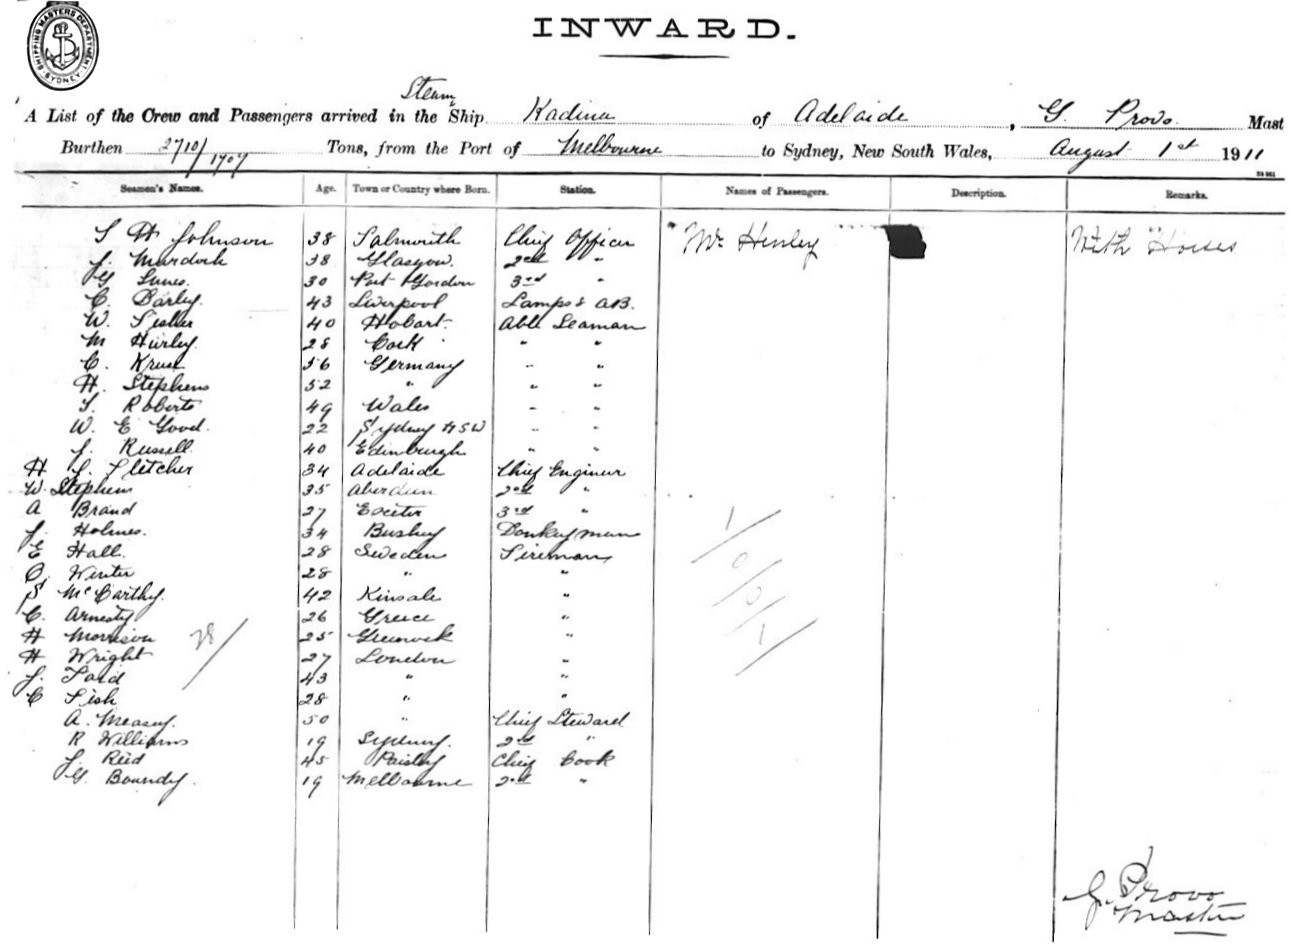 SHIPPING MASTERS DEPARTMENT SYDNEY
INWARD.
Steam
A List of the Crew and Passengers arrived in the Ship Kadina of Adelaide, G. Provo. Mast
Burthen 2710/1707 Tons, from the Port of Melbourne to Sydney, New South Wales, August 1st 1911
Seamen's Names. Age. Town or Country where Born. Station. Names of Passengers. Description. Remarks.
Johnson 38 Falmouth Chief Officer Mr Henley With Horses
J. Murdock 38 Glasgow. 2nd "
G Innes. 30 Port Gordon 3rd "
C. Darley. 43 Liverpool Lamps & AB.
W. Fisher 40 Hobart. Able Seaman
M Hurley. 28 Cork " "
C. Kruse 56 Germany " "
H. Stephens 52 " " "
T. Roberts 49 Wales " "
W. E Good. 22 Sydney NSW " "
J. Russell. 40 Edinburgh " "
H J. Fletcher 34 Adelaide Chief Engineer
W. Stephens 35 Aberdeen 2nd "
A Brand 27 Exeter 3rd "
J. Holmes. 34 Bushey Donkeyman
E Hall. 28 Sweden Fireman
C. Winter 28 " "
S McCarthy. 42 Kinsale "
C. 26 Greece "
H Morrison 25 Greenock "
28/
H Wright 27 London "
J. 43 " "
C Fish 28 " "
A. Measey. 50 " Chief Steward
R Williams 19 Sydney. 2nd "
J. Reid 45 Paisley Chief Cook
G. Boundy. 19 Melbourne 2nd "
1/0/0/1/
G. Provo
Master